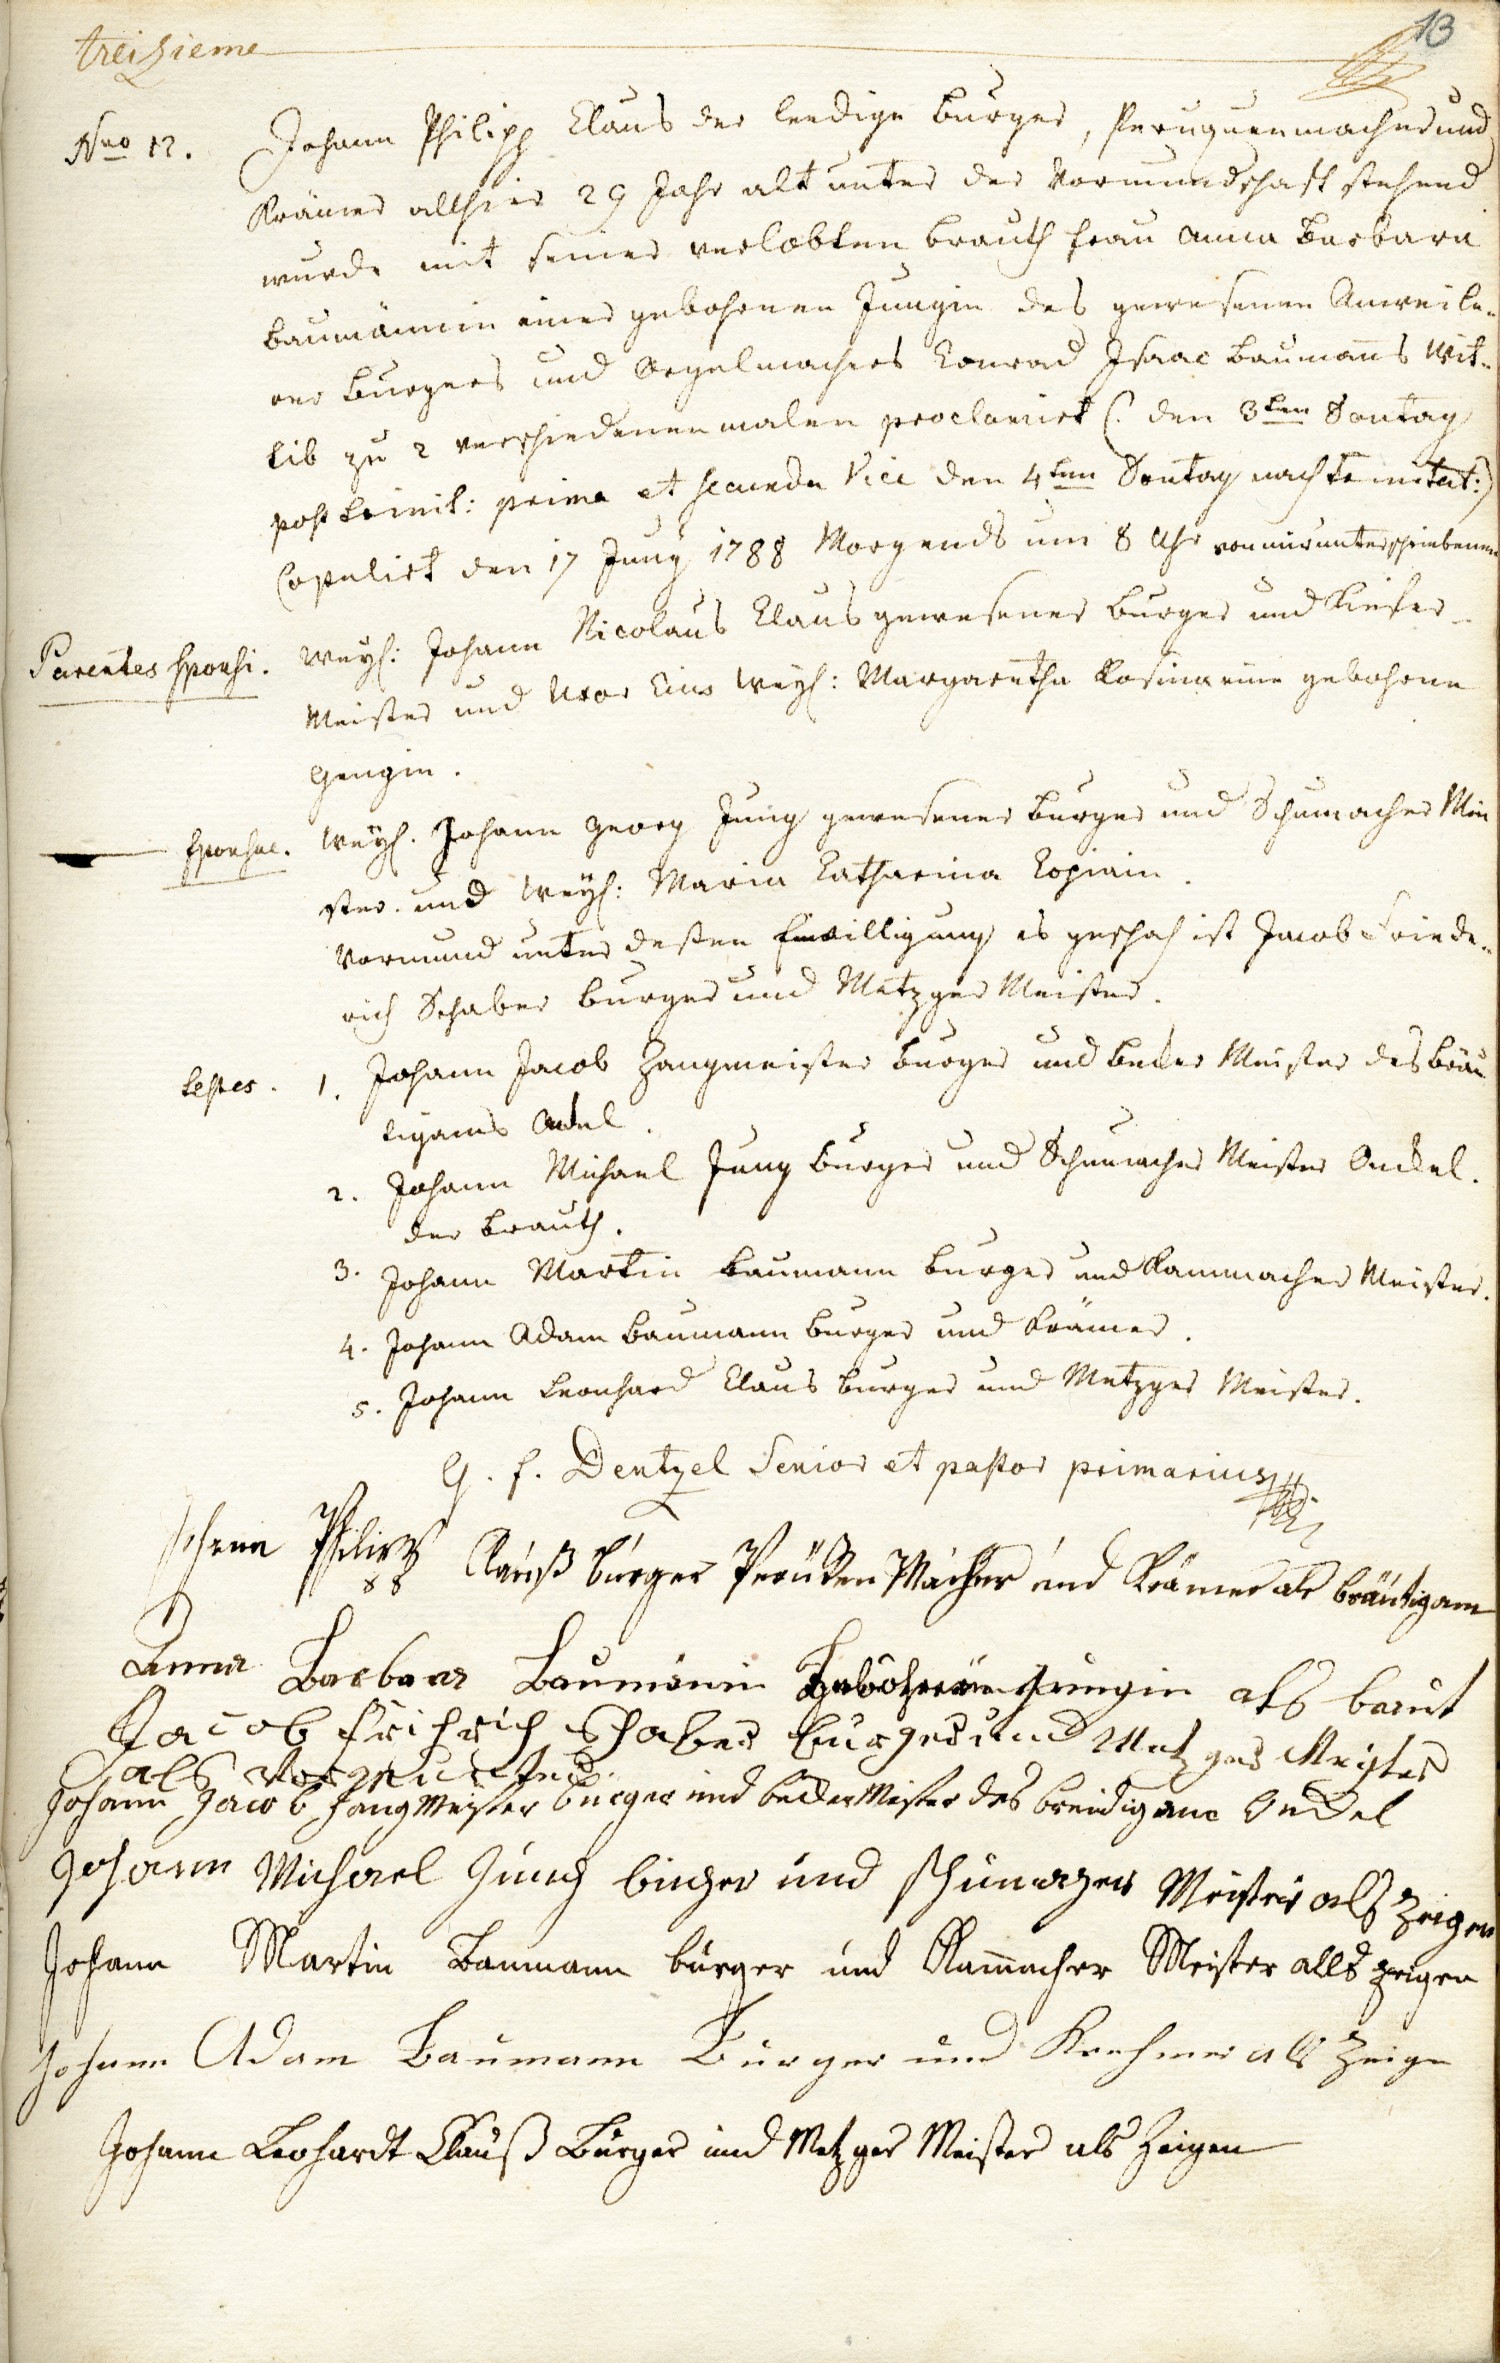 treizieme
13
Nro 12. Johann Philipp Claus der leedige Burger, Peruquenmacher und
Krämer allhier 29 Jahr alt unter der Vormundschaft stehend
wurde mit seiner verlobten Brauth Frau Anna Barbara
Baumännin einer gebohrnen Jungin des gewesenen Anweile-
rer Burgers und Orgelmachers Conrad Isaac Baumanns Wit-
tib zu 2 verschiedenen malen proclamirt (: den 3ten Sontag
post Trinit: prima et secunda Vice den 4ten Sontag nach Trinitat:)
Copulirt den 17 Juny 1788 Morgends um 8 Uhr von mir unterschriebenen
Parentes Sponsi. Weyl: Johann Nicolaus Claus gewesener Burger und Kiefer-
Meister und Uxor Eius Weyl: Margaretha Rosina eine gebohrne
Gengin.
Sponsae. Weyl. Johann Georg Jung gewesener Burger und Schumacher Mei
ster. und Weyl: Maria Catharina
Vormund unter dessen Einwilligung es geschah ist Jacob Friede-
rich Schaber Burger und Metzger Meister.
Testes. 1. Johann Jacob Zangmeister Burger und Becker Meister des Bräu
tigams Onkel.
2. Johann Michael Jung Burger und Schumacher Meister Onckel.
der Brauth.
3. Johann Martin Baumann Burger und Kammacher Meister.
4. Johann Adam Baumann Burger und Krämer.
5. Johann Leonhard Claus Burger und Metzger Meister.
G. F. Dentzel Senior et pastor primarius
Johann Philipp Clauß burger Perücken Macher und Krämer als bräutigam
Anna Barbara Baumänin Gebohrene Jungin als braut
Jacob Frihrich Schaber burger und Metzger Meister
als Vormunder
Johann Jacob Zangmeister burger und becker Meister des breidigams Onckel
Johann Michael Jung burger und schumager Meister als Zeigen
Johann Martin Baumann burger und Kammacher Meister alls zeigen
Johann Adam Baumann Burger und Krehmer als Zeige
Johann Lehardt Clauß Burger und Metzger Meister als Zeigen